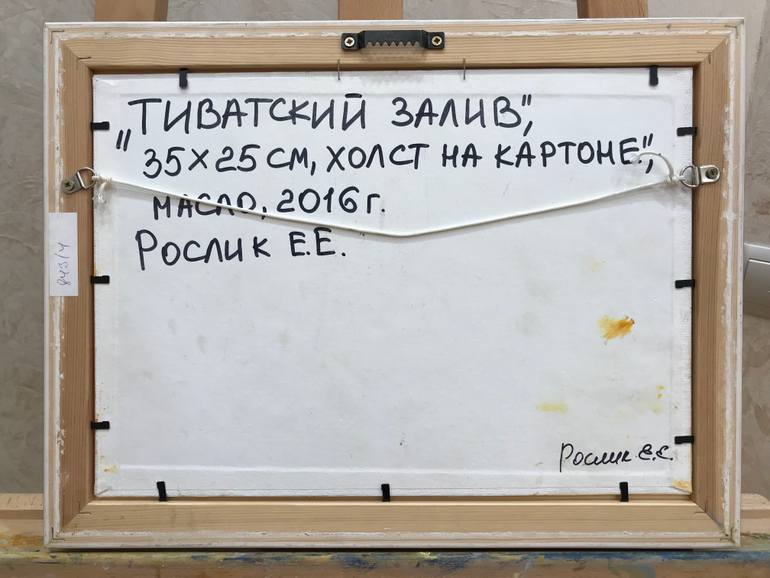 „ТИВАТСКИЙ ЗАЛИВ",
35×25 СМ, ХОЛСТ НА КАРТОНЕ",
МАСЛО, 2016 г.
РОСЛИК Е.Е.
843/4
Рослик Е.Е.